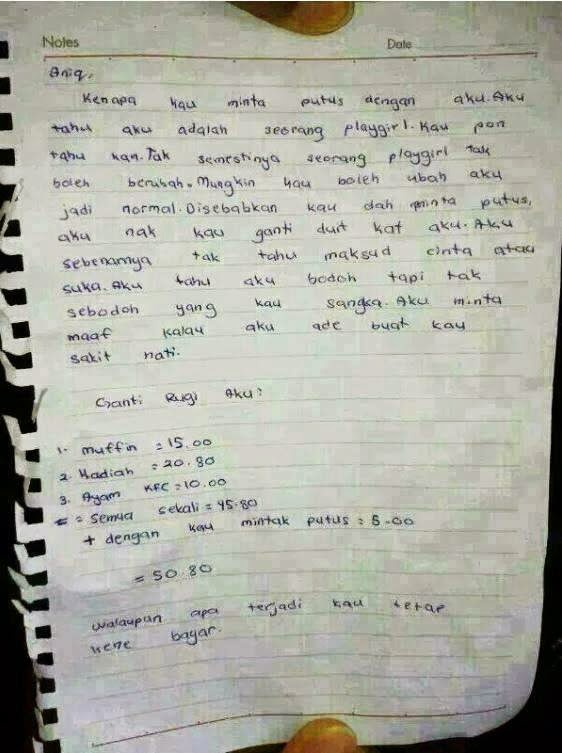 Notes
Date
Aniq,
Kenapa kau minta putus dengan aku. Aku
tahu aku adalah seorang playgirl. Kau pon
tahu kan. Tak semestinya seorang playgirl tak
boleh berubah. Mungkin kau boleh ubah aku
jadi normal. Disebabkan kau dah minta putus,
aku nak kau ganti duit kat aku. Aku
sebenarnya tak tahu maksud cinta atau
suka. Aku tahu aku bodoh tapi tak
sebodoh yang kau sangka. Aku minta
maaf kalau aku ade buat kau
sakit hati.
Ganti Rugi Aku:
1. muffin = 15.00
2. Hadiah = 20.80
3. Ayam KFC = 10.00
= semua sekali = 45.80
+ dengan kau mintak putus = 5.00
= 50.80
walaupun apa terjadi kau tetap
kene bayar.